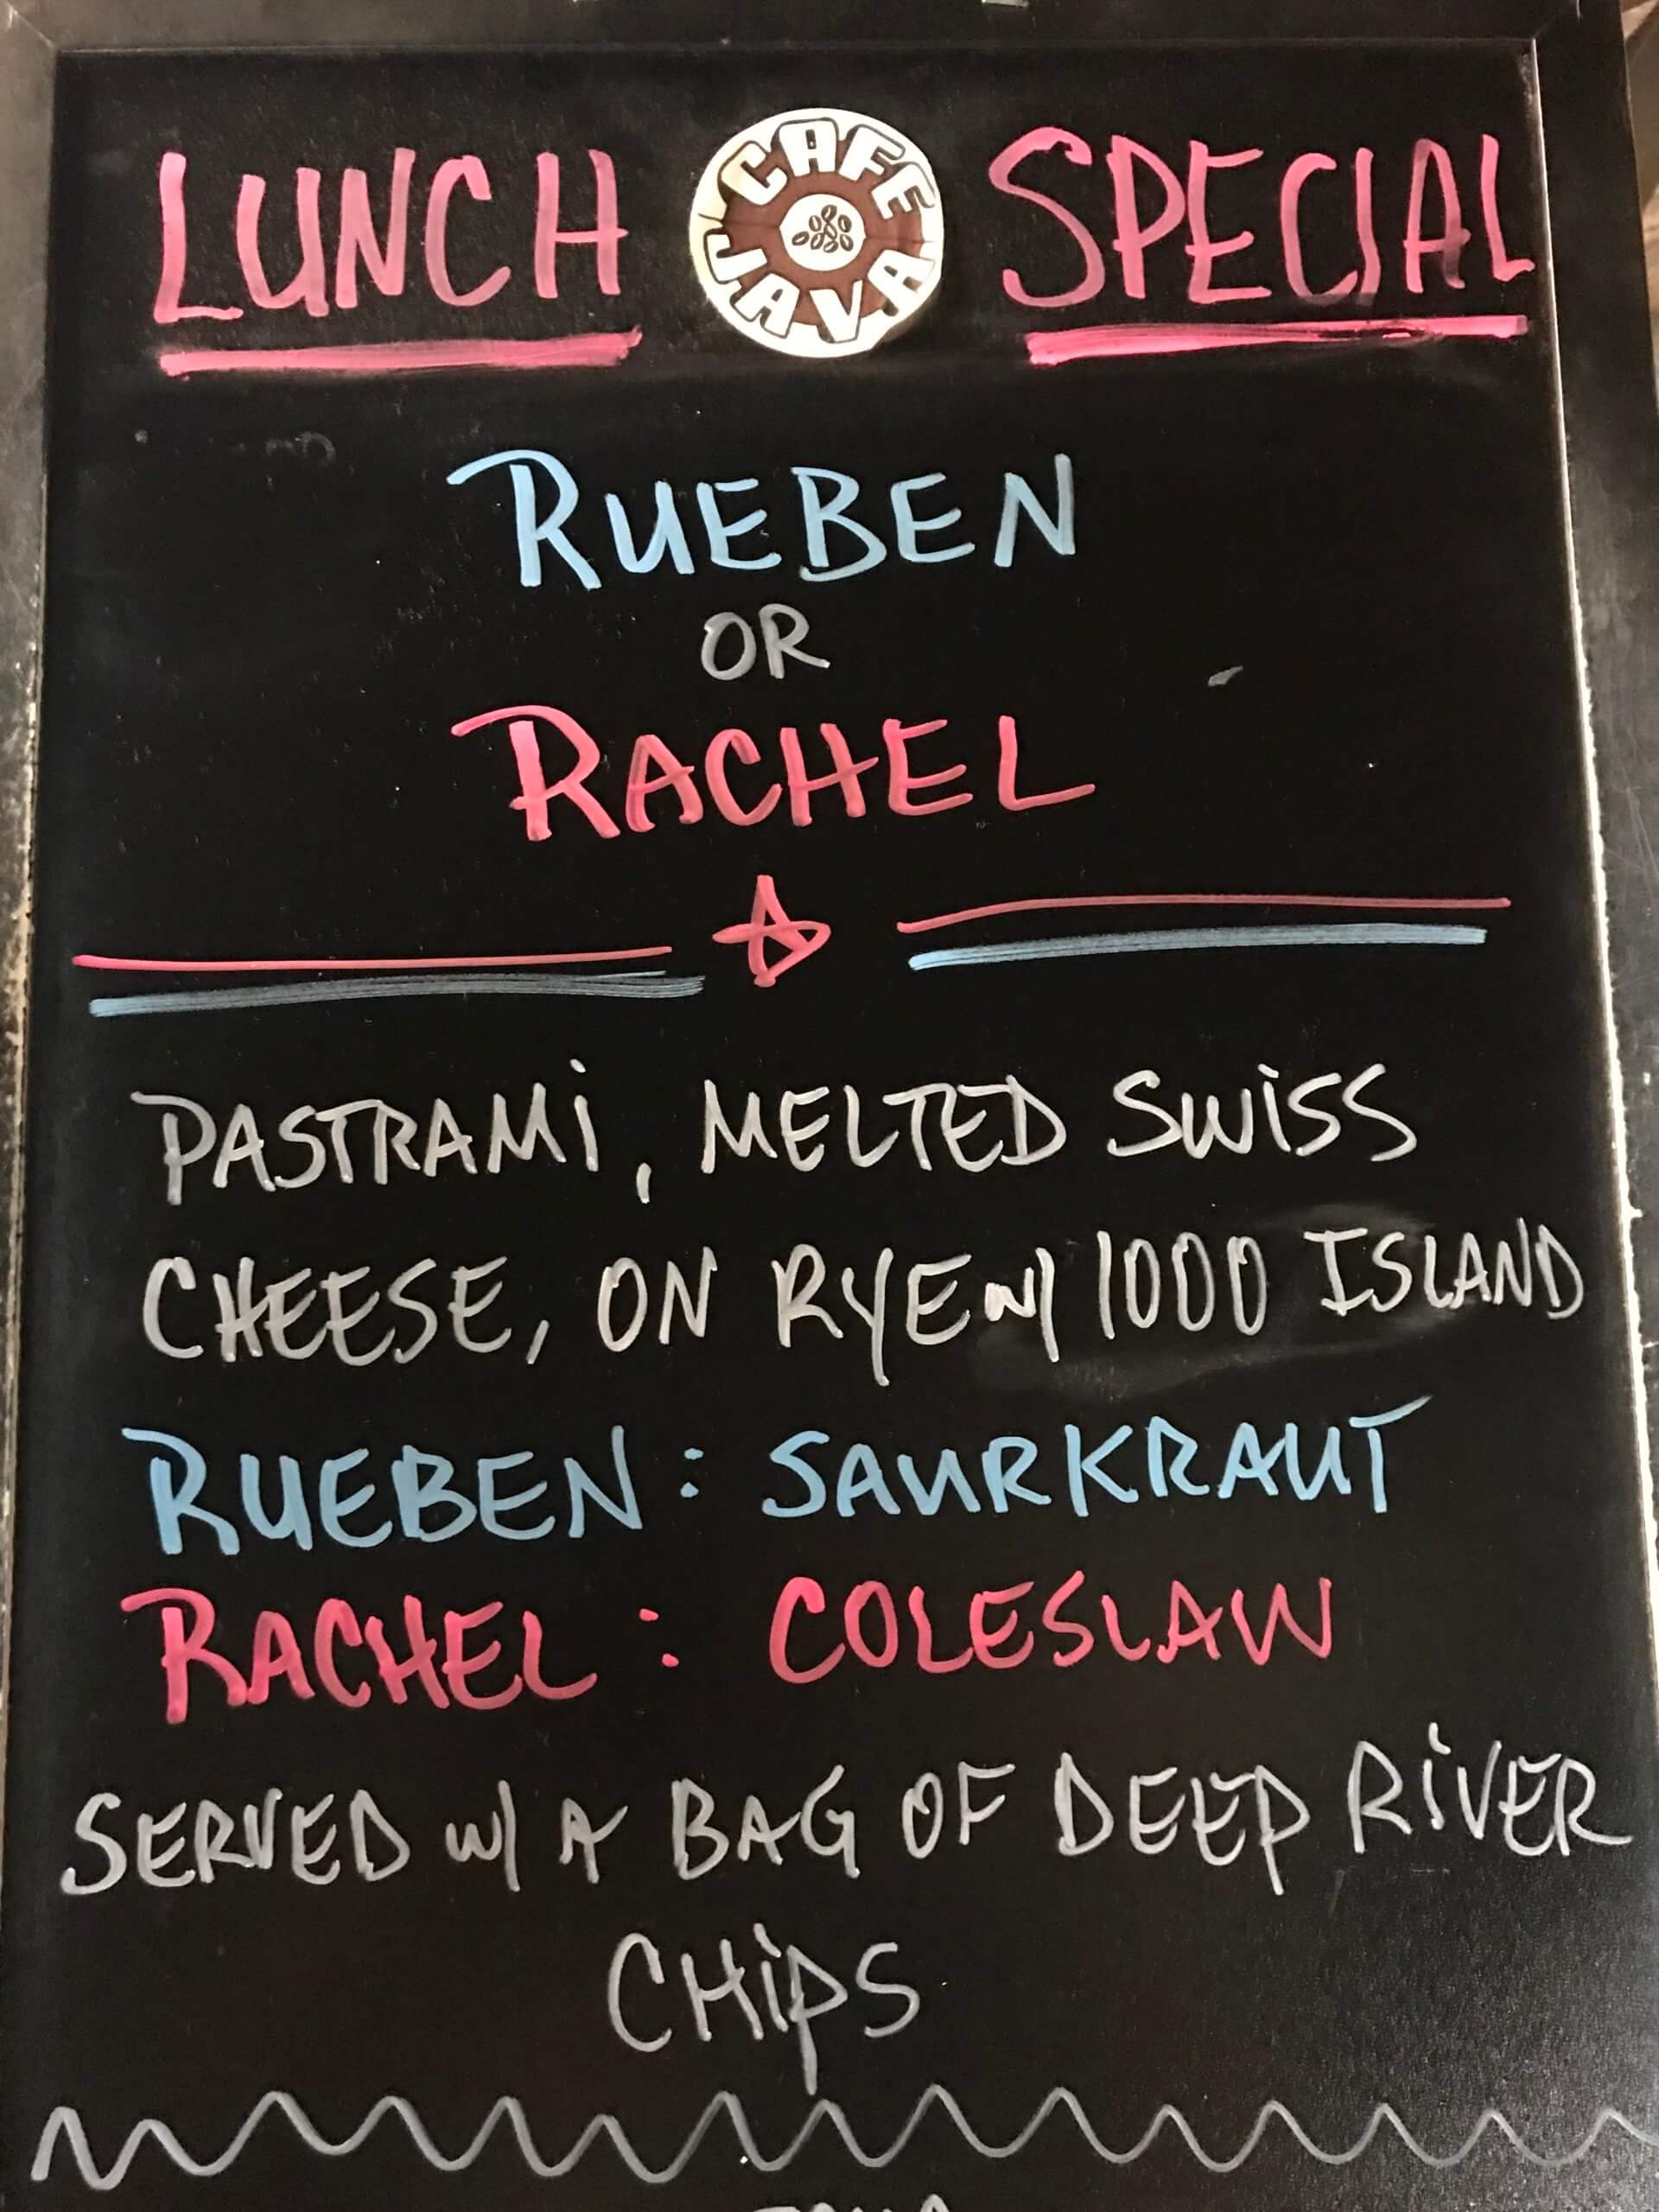 LUNCH CAFE JAVA SPECIAL
RUEBEN
OR
RACHEL
PASTRAMi, MELTED SWiSS
CHEESE, ON RYE w/ 1000 ISLAND
RUEBEN: SAURKRAUT
RACHEL: COLESLAW
SERVED w/ A BAG OF DEEP RiVER
CHiPS